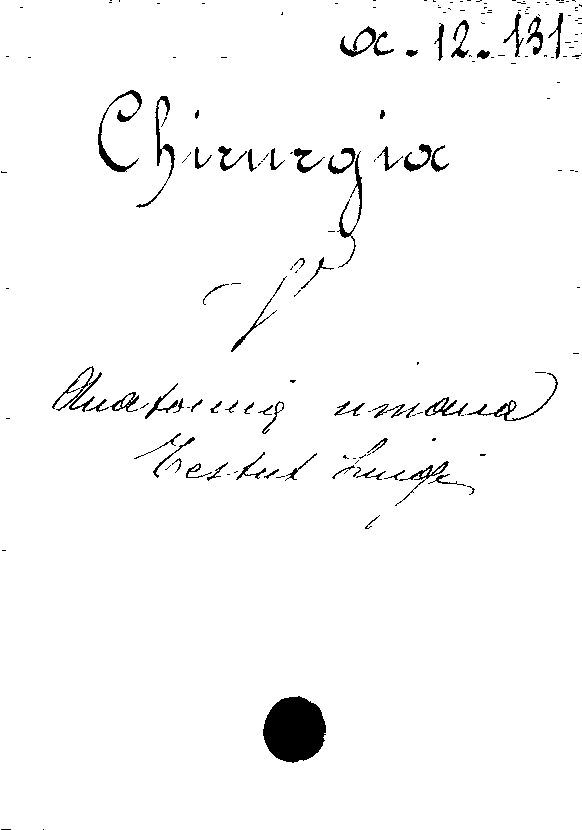 α-12-131
Chirurgia
V
Anatomia umana
Testut Luigi